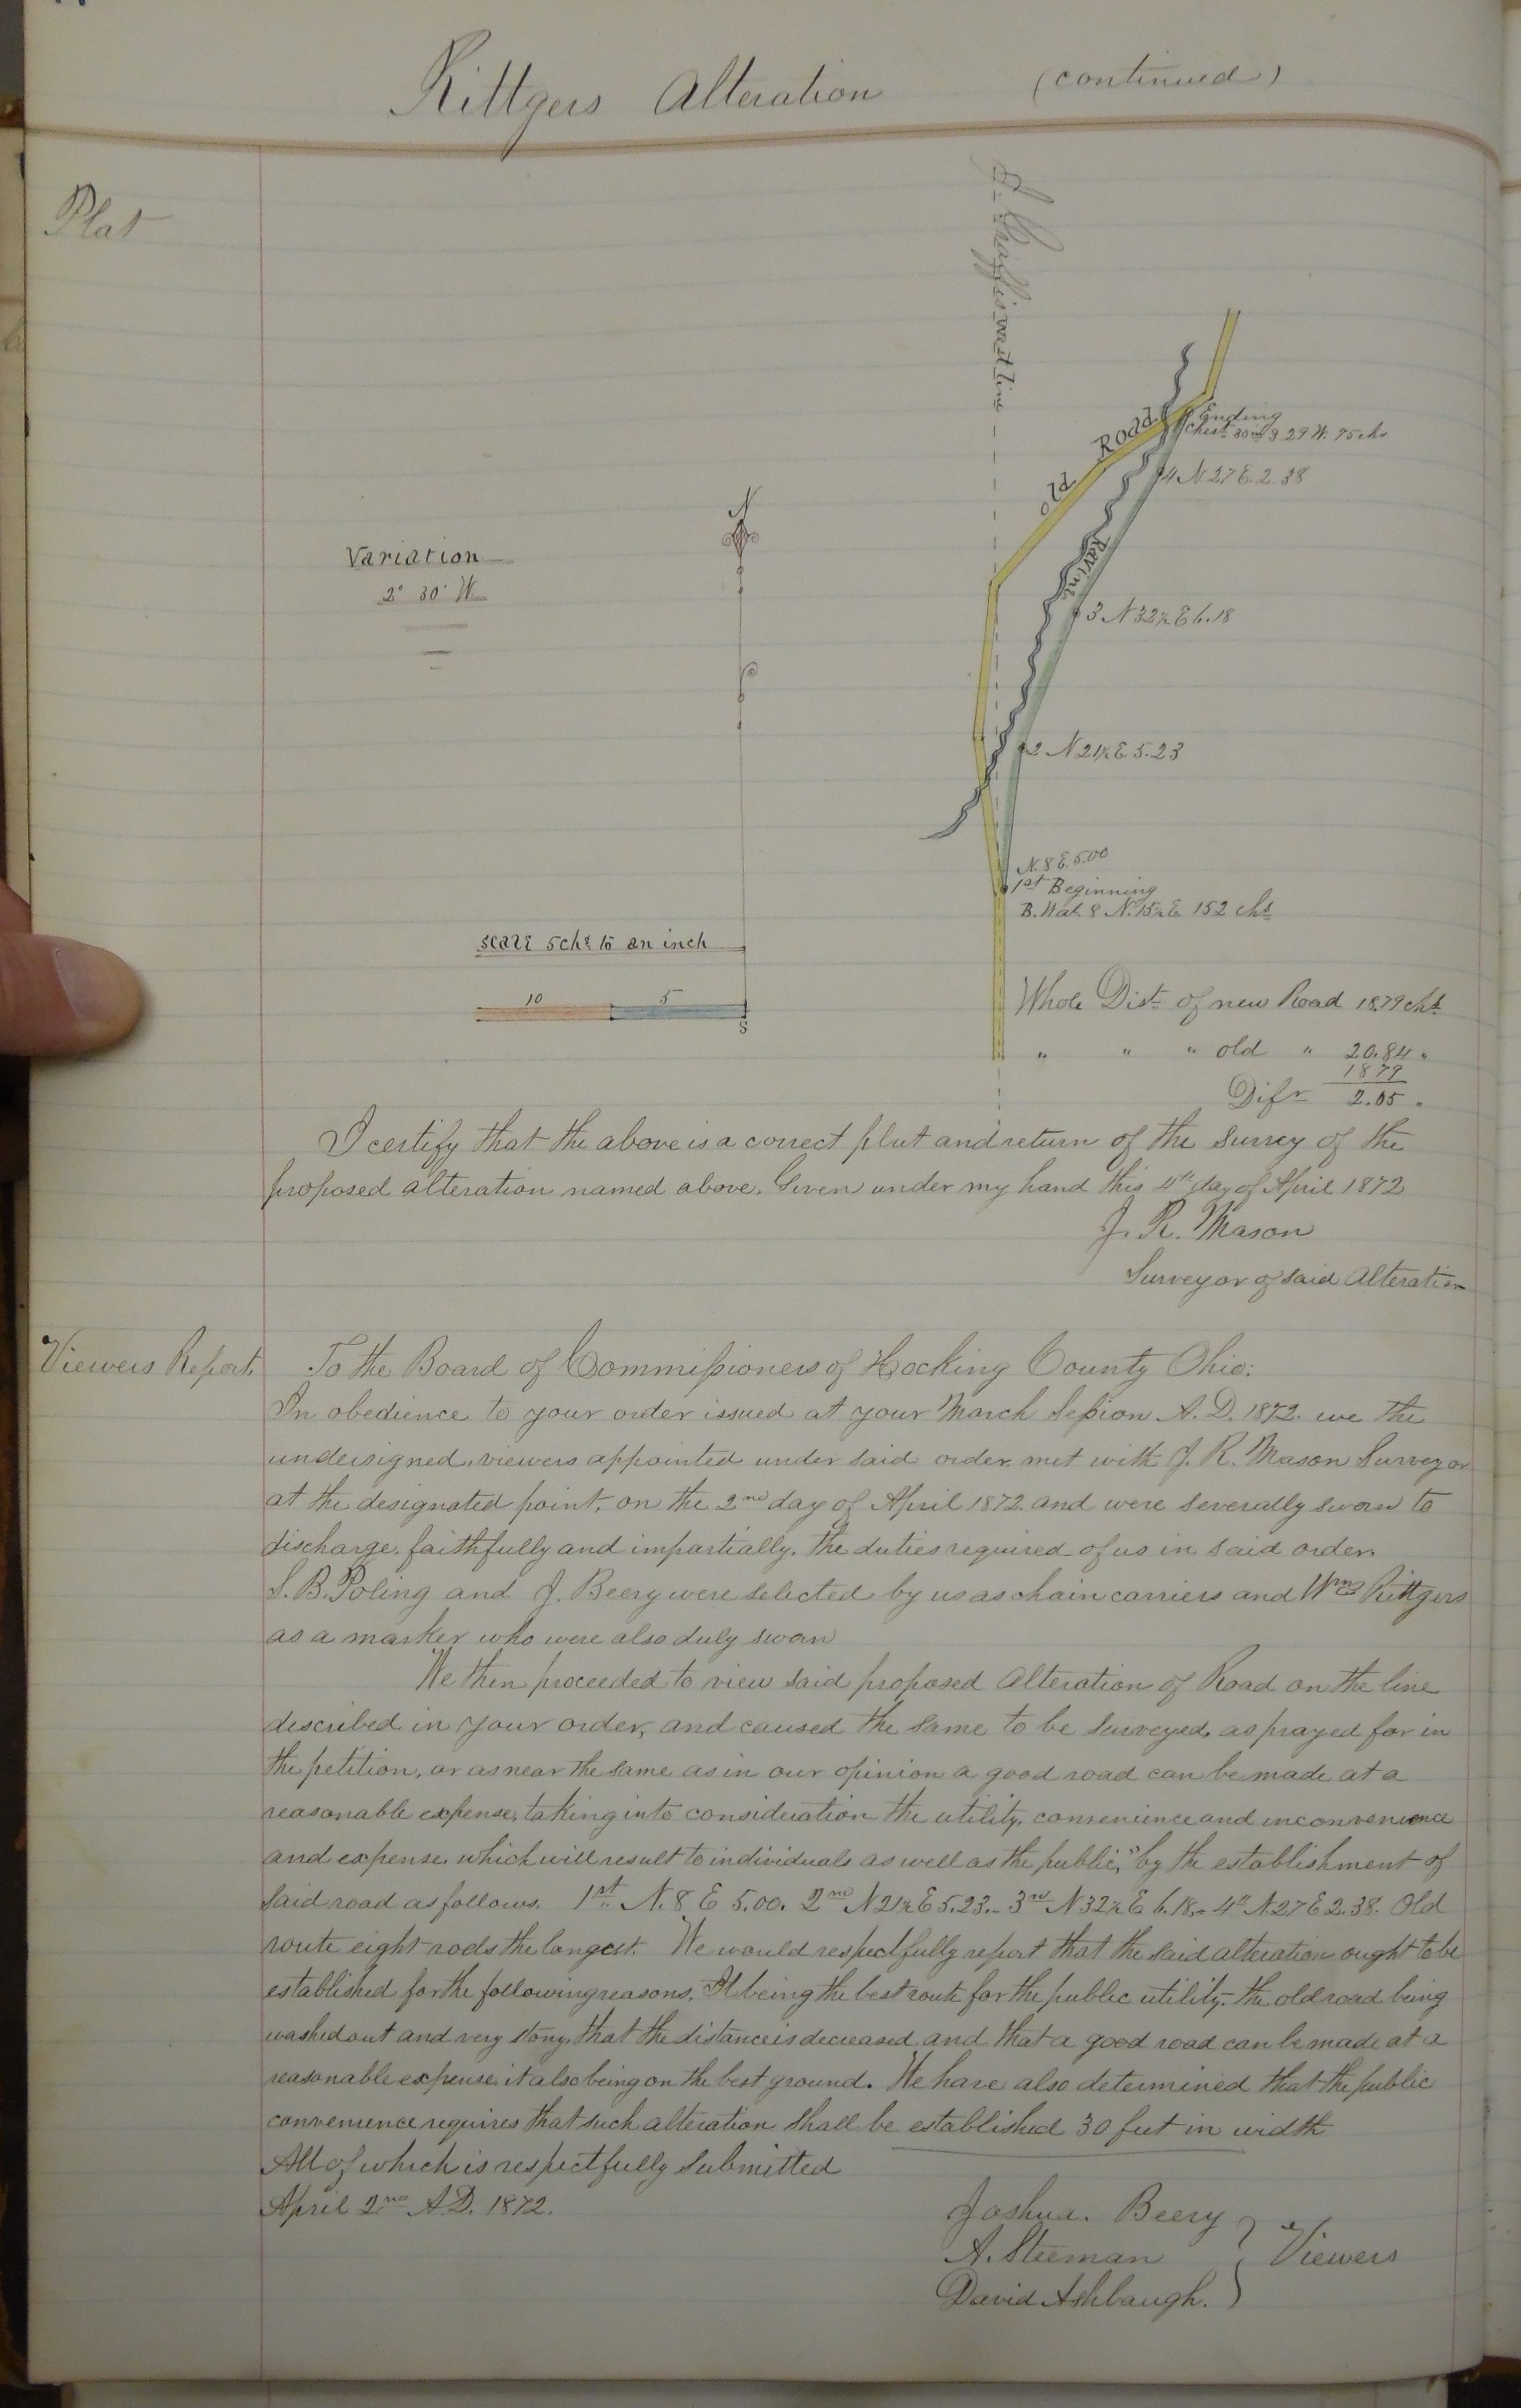 Rittgers Alteration (continued)
Plat
west line
Old Road
Ending
Chest. 30 in S. 29 W. 75 chs
4 N. 27 E. 2.38
Ravine
3 N 32½ E 6.18
2 N 21½ E. 5.23
N. 8 E. 5.00
1st Beginning
B. Wal. 8 N. 15½ E. 152 chs
N
Variation
2° 30' W
scale 5 chs to an inch
10 5
S
Whole Dist. of new Road 18.79 chs
" " " old " 20.84 "
1879
Difr 2.05 "
I certify that the above is a correct plat and return of the survey of the
proposed alteration named above. Given under my hand this 4th day of April 1872
J. R. Mason
Surveyor of said Alteration
Viewers Report.
To the Board of Commissioners of Hocking County Ohio:
In obedience to your order issued at your March Session A. D. 1872. we the
undersigned, viewers appointed under said order met with J. R. Mason Surveyor
at the designated point, on the 2nd day of April 1872 and were severally sworn to
discharge, faithfully and impartially, the duties required of us in said order.
S. B. Poling and J. Beery were selected by us as chain carriers and Wm Rittgers
as a marker who were also duly sworn
We then proceeded to view said proposed Alteration of Road on the line
described in your order, and caused the same to be surveyed, as prayed for in
the petition, or as near the same as in our opinion a good road can be made at a
reasonable expense, taking into consideration the utility, convenience and inconvenience
and expense, which will result to individuals as well as the public, by the establishment of
said road as follows. 1st N. 8 E 5.00. 2nd N 21½ E 5.23. - 3rd N 32½ E 6.18. - 4th N. 27 E 2.38. Old
route eight rods the longest. We would respectfully report that the said alteration ought to be
established for the following reasons, It being the best route for the public utility, the old road being
washed out and very stony, that the distance is decreased, and that a good road can be made at a
reasonable expense, it also being on the best ground. We have also determined that the public
convenience requires that such alteration shall be established 30 feet in width
All of which is respectfully submitted
April 2nd A.D. 1872.
Joshua. Beery
A. Steeman
David Ashbaugh.
Viewers